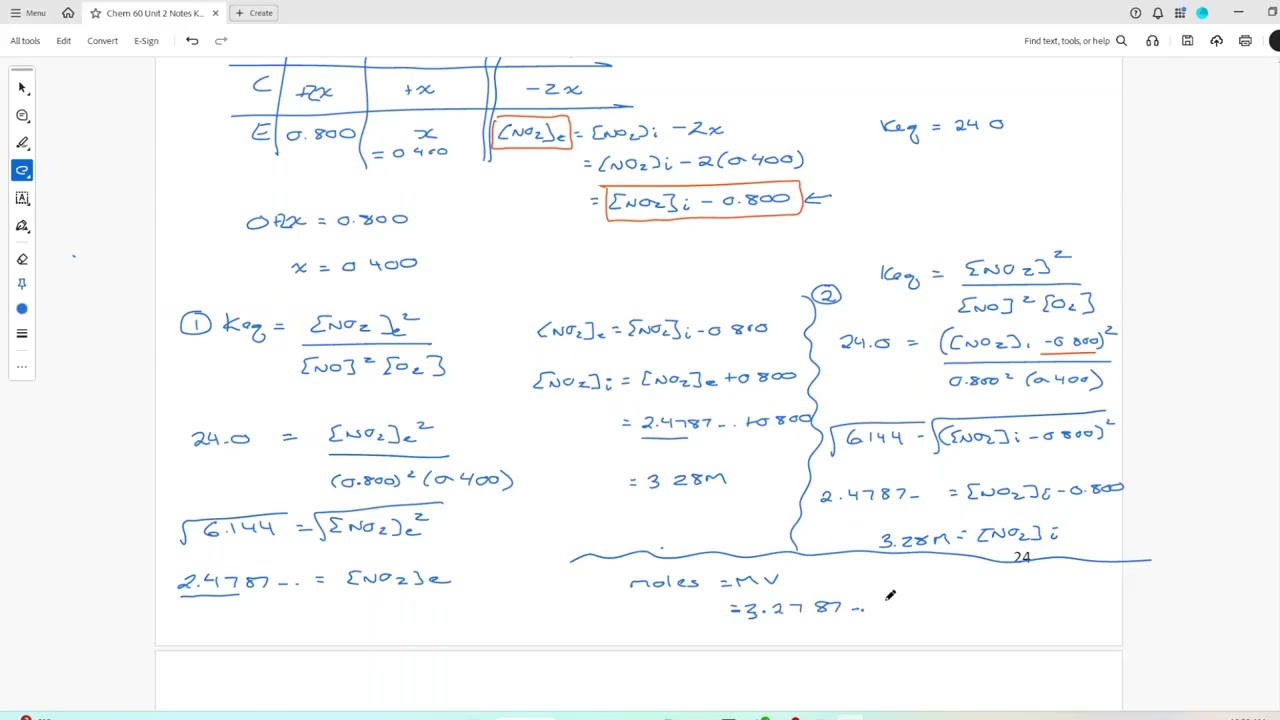 Menu
Chem 60 Unit 2 Notes K...
Create
All tools Edit Convert E-Sign
Find text, tools, or help
C +2x +x -2x
E 0.800 x [NO2]e = [NO2]i - 2x
= 0.400
= [NO2]i - 2(0.400)
= [NO2]i - 0.800 ←
Keq = 24.0
0+2x = 0.800
x = 0.400
① Keq = [NO2]e²
[NO]² [O2]
24.0 = [NO2]e²
(0.800)² (0.400)
√6.144 = √[NO2]e²
2.4787... = [NO2]e
[NO2]e = [NO2]i - 0.800
[NO2]i = [NO2]e + 0.800
= 2.4787... + 0.800
= 3.28M
②
Keq = [NO2]²
[NO]² [O2]
24.0 = ([NO2]i - 0.800)²
0.800² (0.400)
√6.144 = √([NO2]i - 0.800)²
2.4787... = [NO2]i - 0.800
3.28M = [NO2]i
24
moles = MV
= 3.2787...